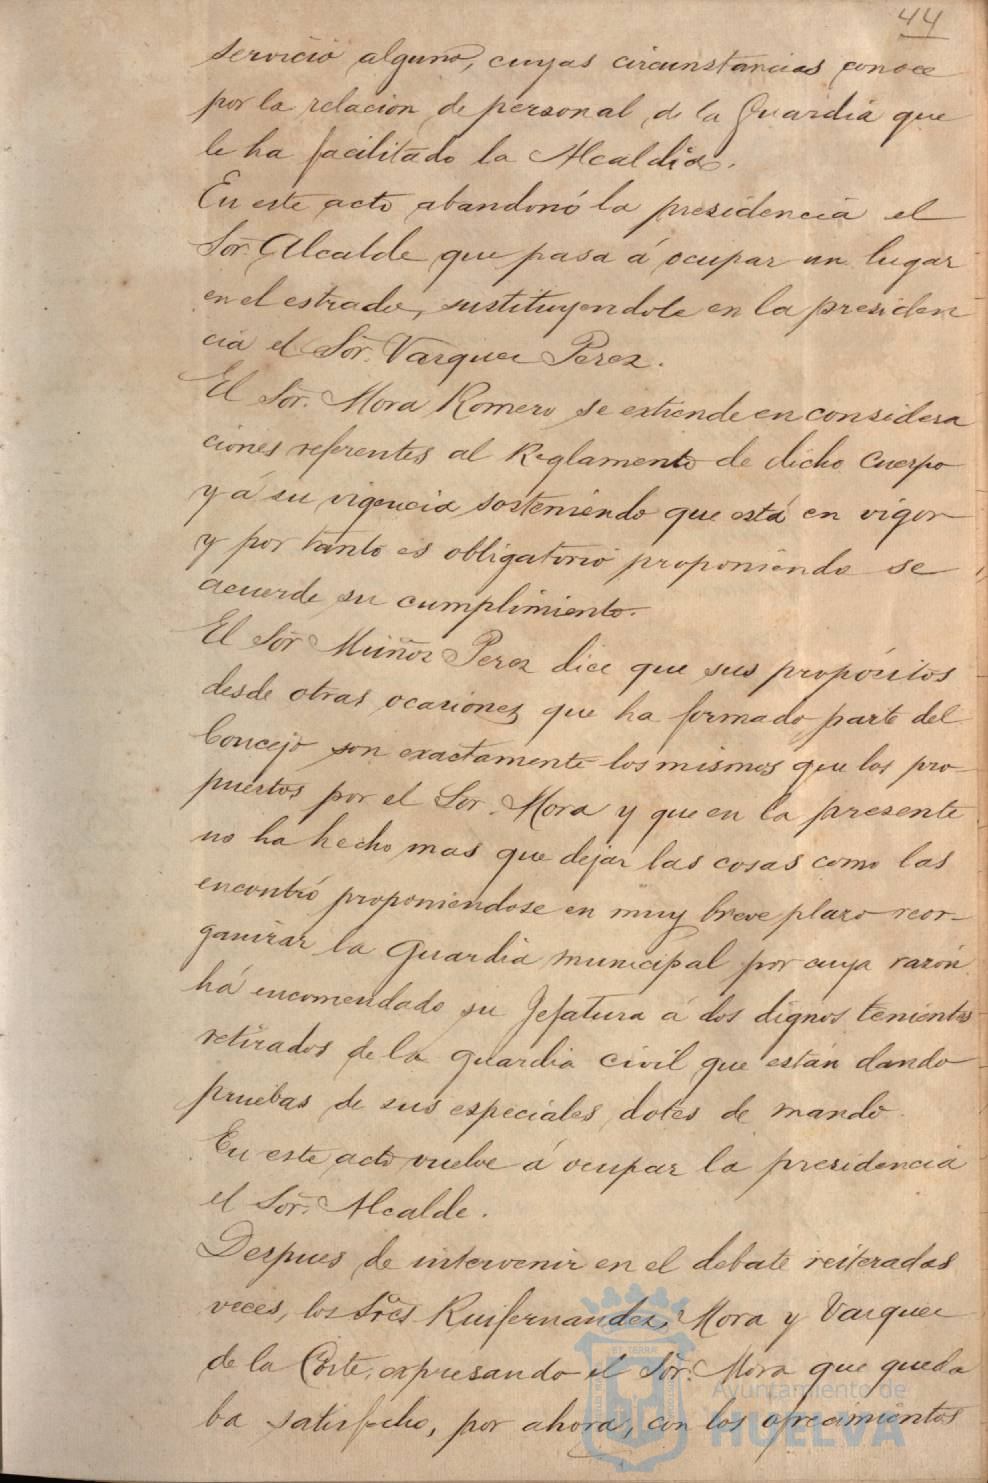 44
servicio alguno, cuyas circunstancias conoce
por la relacion de personal de la Guardia que
le ha facilitado la Alcaldia.
En este acto abandonó la presidencia el
Sor. Alcalde que pasa á ocupar un lugar
en el estrado, sustituyendole en la presiden
cia el Sor. Vazquez Perez.
El Sor. Mora Romero se extiende en considera
ciones referentes al Reglamento de dicho Cuerpo
y á su vigencia sosteniendo que está en vigor
y por tanto es obligatorio proponiendo se
acuerde su cumplimiento.
El Sor Muñoz Perez dice que sus propósitos
desde otras ocasiones que ha formado parte del
Concejo son exactamente los mismos que los pro-
puestos por el Sor. Mora y que en la presente
no ha hecho mas que dejar las cosas como las
encontró proponiendose en muy breve plazo reor-
ganizar la Guardia municipal por cuya razón
há encomendado su Jefatura á dos dignos tenientes
retirados de la guardia civil que están dando
pruebas de sus especiales dotes de mando.
En este acto vuelve á ocupar la presidencia
el Sor. Alcalde.
Despues de intervenir en el debate reiteradas
veces, los Sres Ruifernandez, Mora y Vazquez
de la Corte, expresando el Sor. Mora que queda
ba satisfecho, por ahora, con los ofrecimientos
ET TERRÆ
Ayuntamiento de
HUELVA